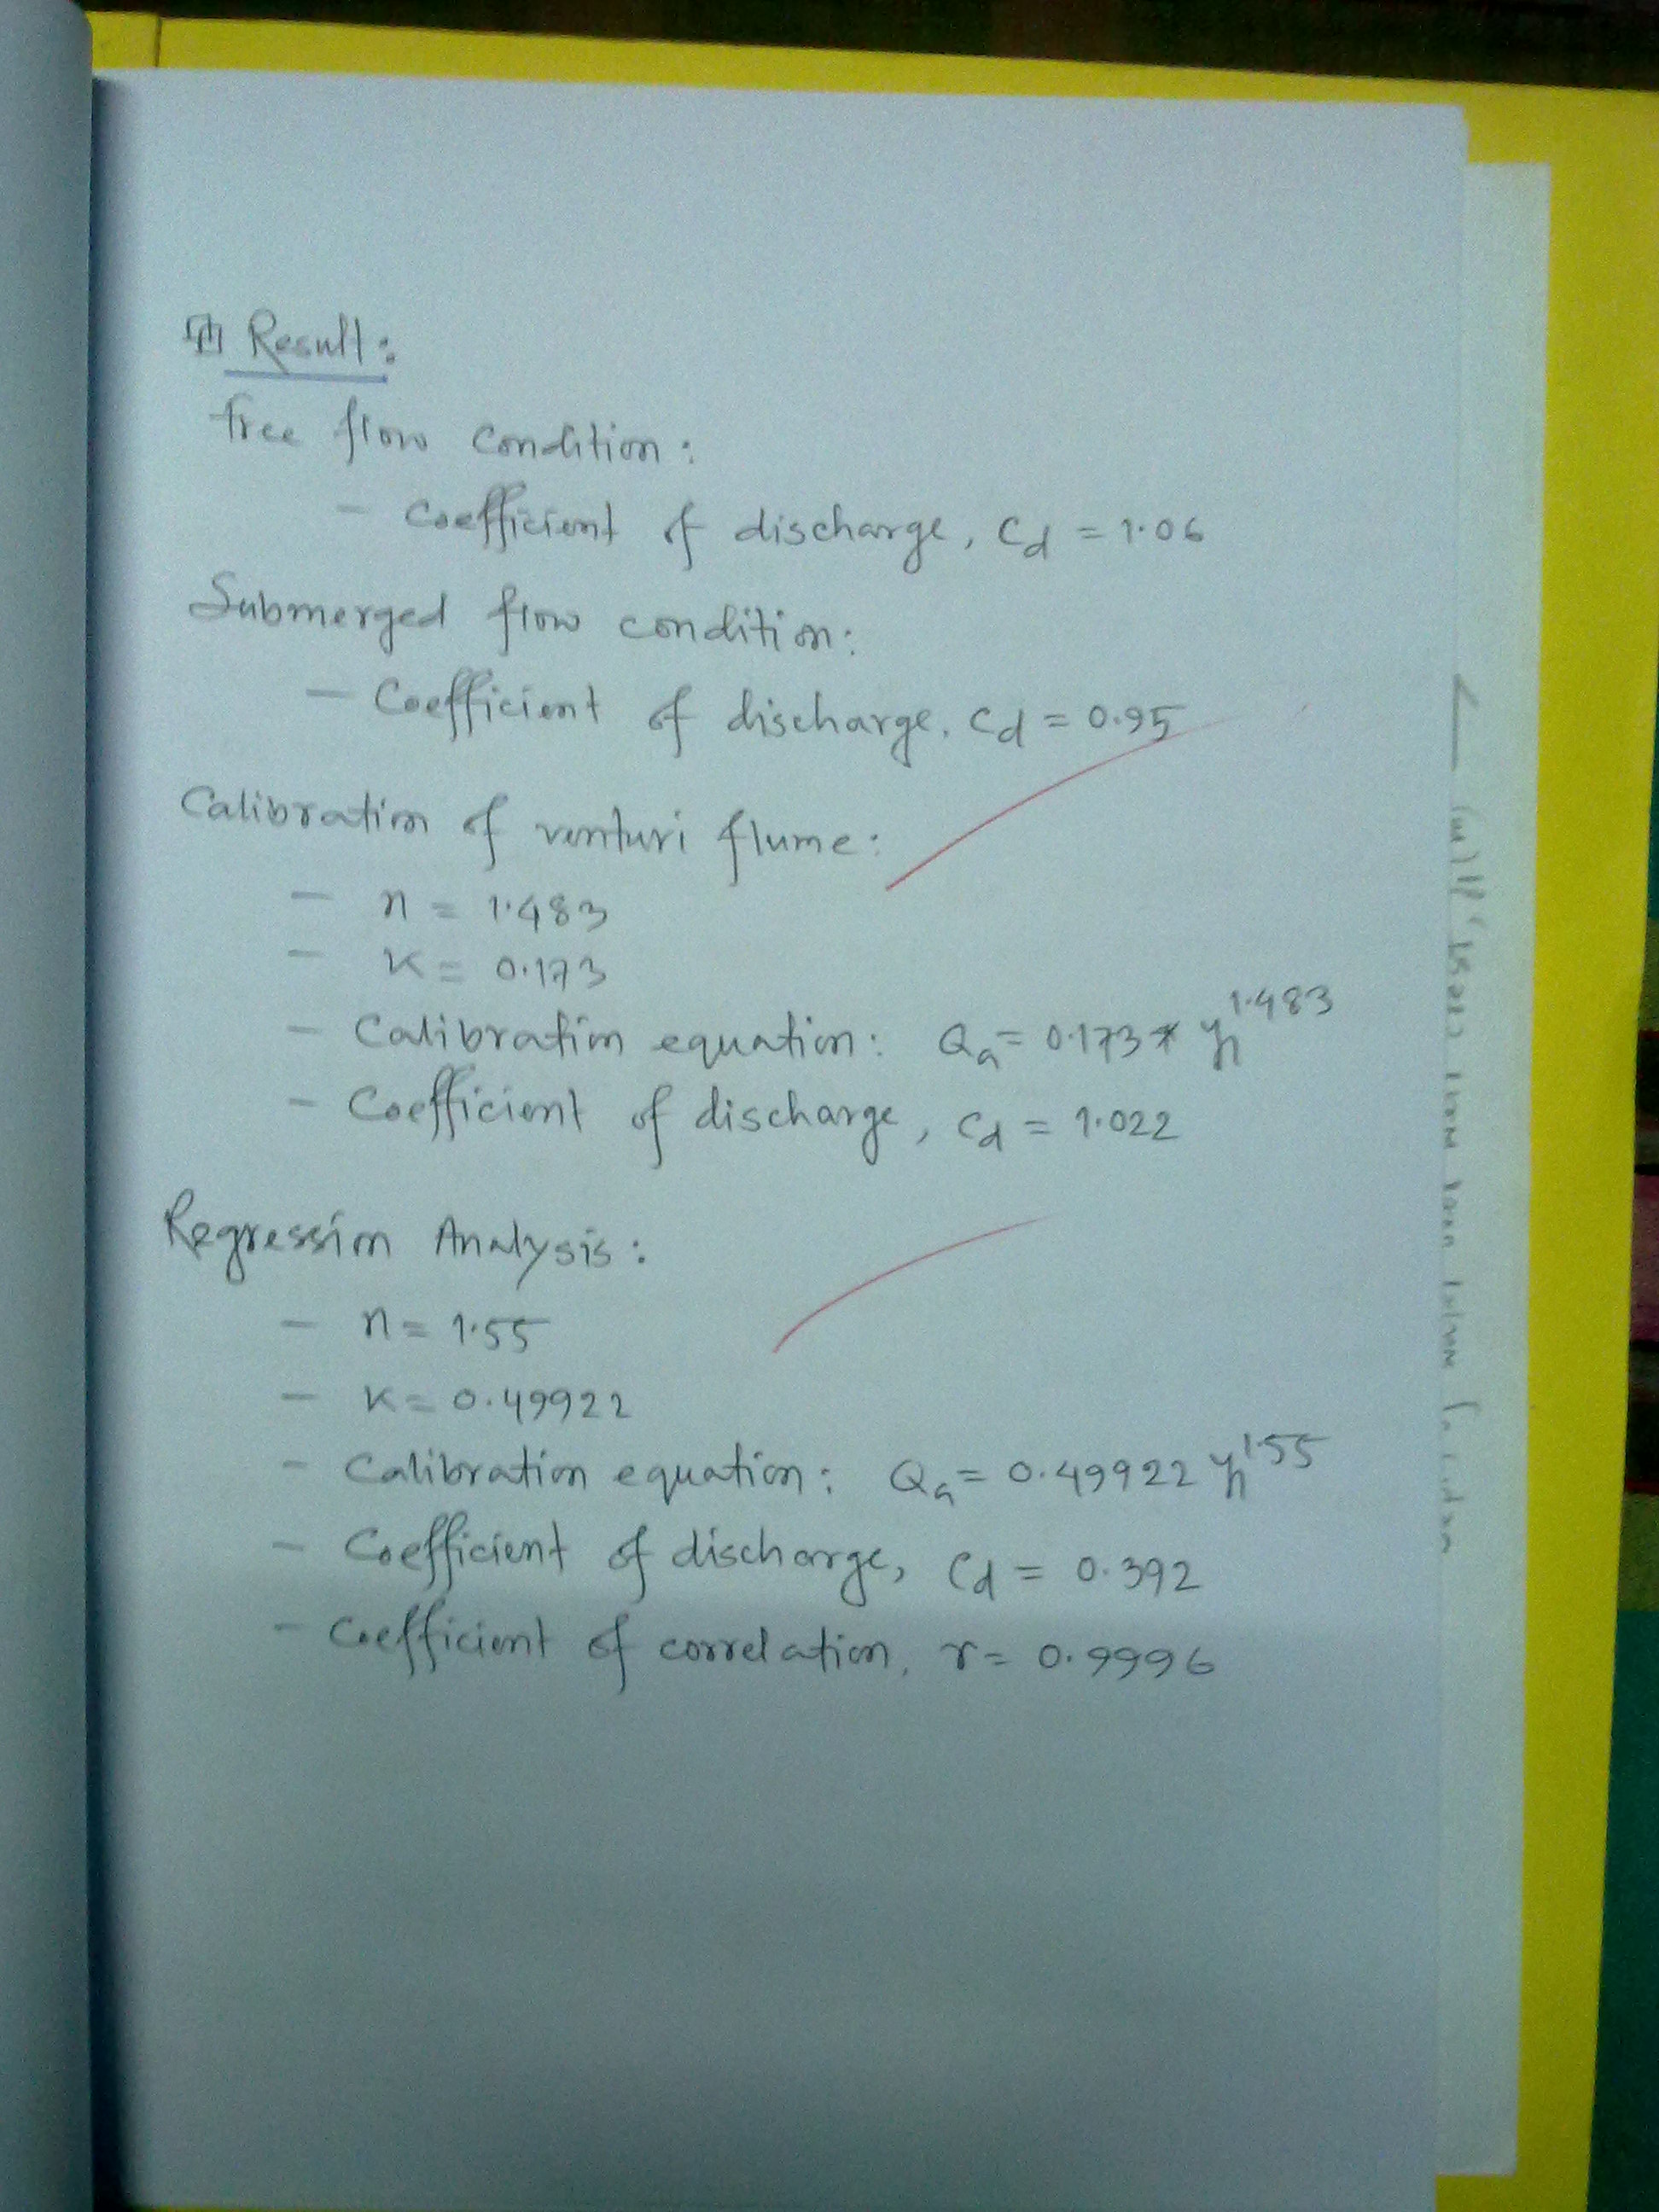 Result:
Free flow condition:
- Coefficient of discharge, Cd = 1.06
Submerged flow condition:
- Coefficient of discharge, Cd = 0.95
Calibration of venturi flume:
- n = 1.483
- K = 0.173
- Calibration equation: Qa = 0.173 * y₁^1.483
- Coefficient of discharge, Cd = 1.022
Regression Analysis:
- n = 1.55
- K = 0.49922
- Calibration equation: Qa = 0.49922 y₁^1.55
- Coefficient of discharge, Cd = 0.392
- Coefficient of correlation, r = 0.9996